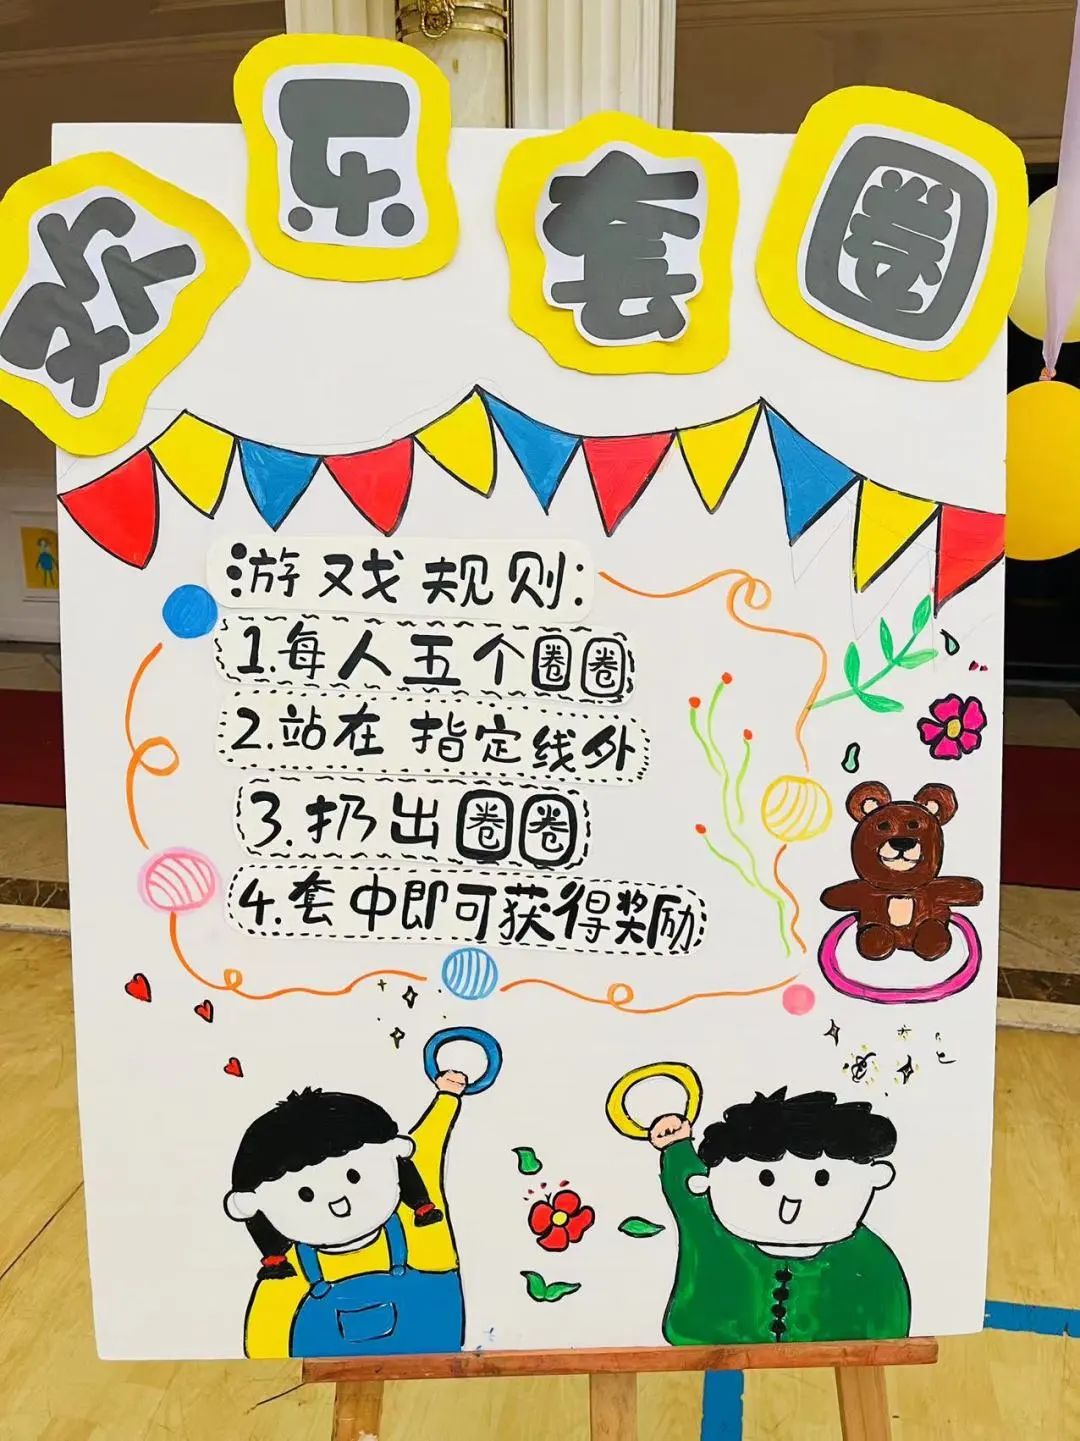 欢乐套圈
游戏规则:
1.每人五个圈圈
2.站在指定线外
3.扔出圈圈
4.套中即可获得奖励